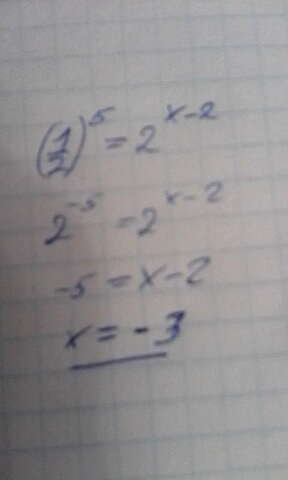 (1/2)^5 = 2^{x-2}
2^{-5} = 2^{x-2}
-5 = x-2
x = -3